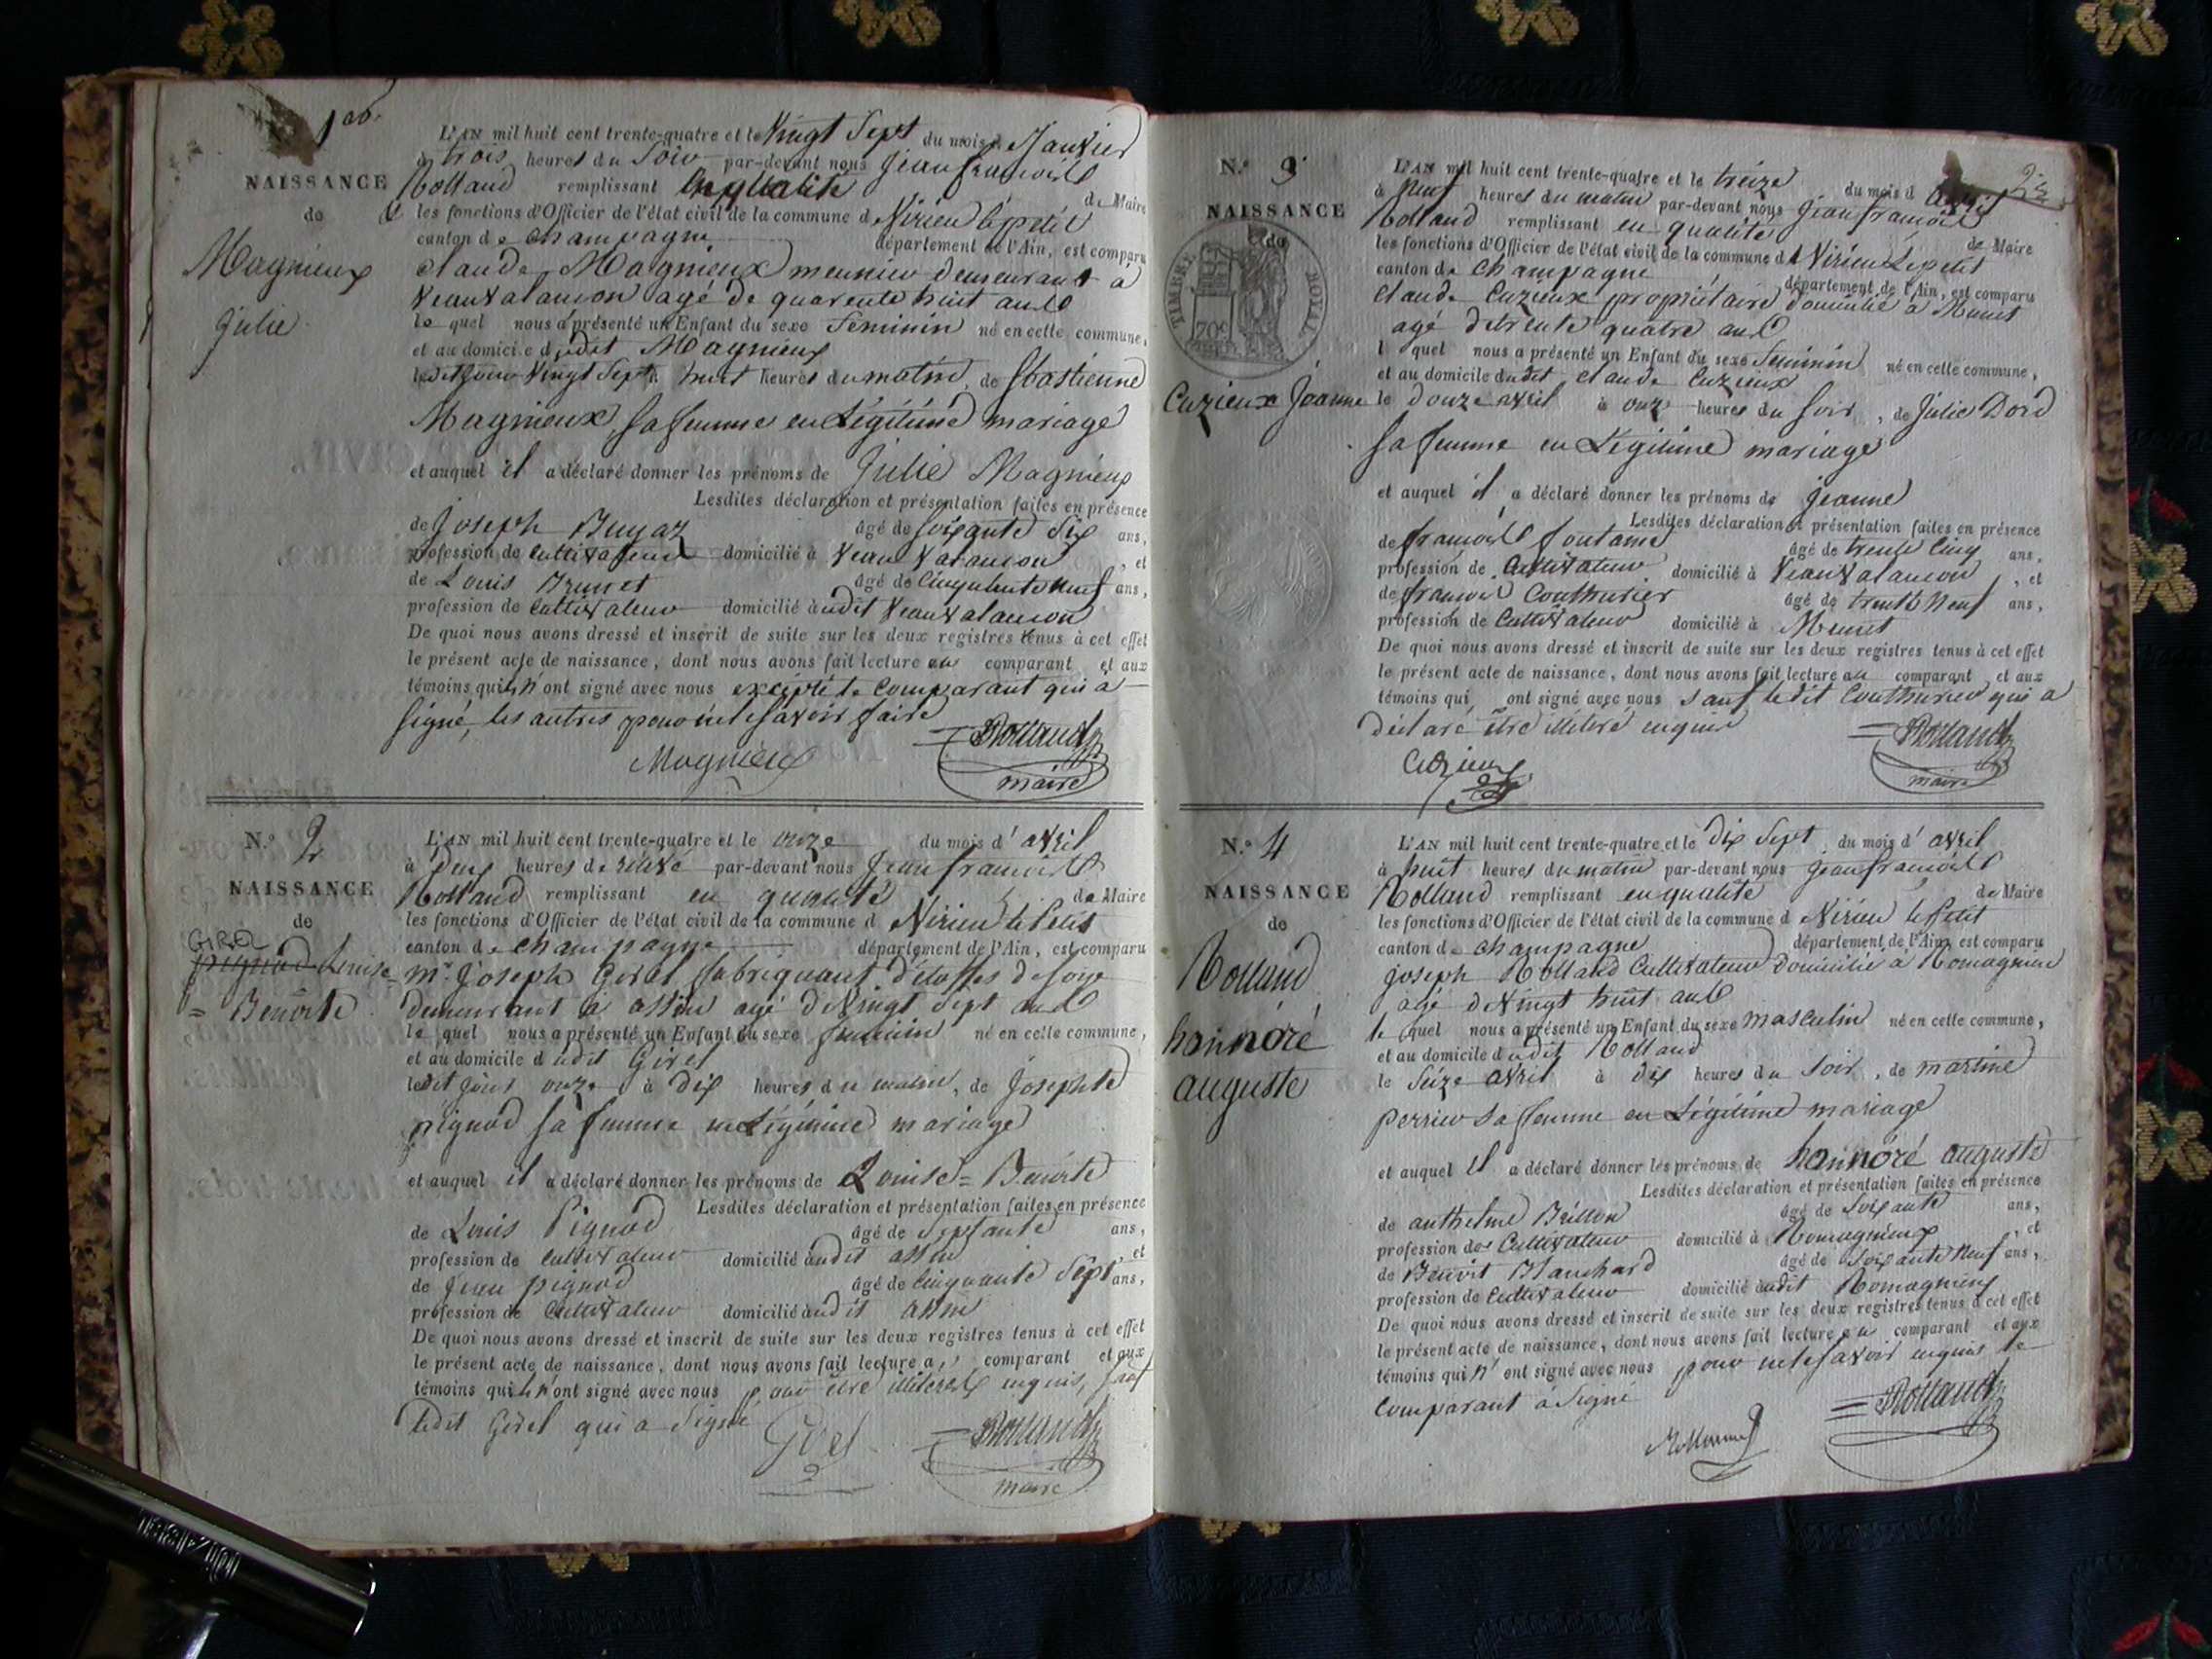 1
NAISSANCE
de
Magnieux
Julie
L'AN mil huit cent trente-quatre et le Vingt Sept du mois d Janvier
à trois heures du Soir par-devant nous Jean françois
Rolland remplissant en qualité de Maire
les fonctions d'Officier de l'état civil de la commune d Virieu le petit
canton de champagne département de l'Ain, est comparu
claude Magnieux meunier demeurant à
agé de quarente huit ans
le quel nous a présenté un Enfant du sexe feminin né en cette commune,
et au domicile dudit Magnieux
ledit jour Vingt Sept à huit heures du matin, de
Magnieux sa femme en Légitime mariage
et auquel il a déclaré donner les prénoms de Julie Magnieux
Lesdites déclaration et présentation faites en présence
de Joseph âgé de soixante six ans,
profession de Cultivateur domicilié à , et
de Louis Brunet âgé de Cinquante neuf ans,
profession de Cultivateur domicilié audit
De quoi nous avons dressé et inscrit de suite sur les deux registres tenus à cet effet
le présent acte de naissance, dont nous avons fait lecture au comparant et aux
témoins qui n'ont signé avec nous excepté le comparant qui a
signé, les autres pour ne le savoir faire
Magnieux
Rolland
maire
N.º 2
NAISSANCE
de
Girel
pignod Louise
= Benoite
L'AN mil huit cent trente-quatre et le onze du mois d'avril
à Deux heures de relevé par-devant nous Jean françois
Rolland remplissant en qualité de Maire
les fonctions d'Officier de l'état civil de la commune d Virieu le Petit
canton de champagne département de l'Ain, est comparu
mr. Joseph Girel fabriquant d'étoffes de soie
demeurant à assin agé de Vingt sept ans
le quel nous a présenté un Enfant du sexe feminin né en cette commune,
et au domicile dudit Girel
ledit jour onze à dix heures du matin, de Josephte
pignod sa femme en Légitime mariage
et auquel il a déclaré donner les prénoms de Louise = Benoite
Lesdites déclaration et présentation faites en présence
de Louis Pignod âgé de septante ans,
profession de cultivateur domicilié audit assin , et
de Jean pignod âgé de Cinquante Sept ans,
profession de Cultivateur domicilié audit assin
De quoi nous avons dressé et inscrit de suite sur les deux registres tenus à cet effet
le présent acte de naissance, dont nous avons fait lecture au comparant et aux
témoins qui n'ont signé avec nous pour être illiterés enquis,
ledit Girel qui a signé
Girel
Rolland
maire
N.º 3
NAISSANCE
de
TIMBRE ROYAL
70c
Cuzieux Jeanne
L'AN mil huit cent trente-quatre et le treize du mois d avril
à neuf heures du matin par-devant nous Jean françois
Rolland remplissant en qualité de Maire
les fonctions d'Officier de l'état civil de la commune d Virieu Le petit
canton de Champagne département de l'Ain, est comparu
claude Cuzieux propriétaire domicilié à Munet
agé de trente quatre ans
l quel nous a présenté un Enfant du sexe feminin né en cette commune,
et au domicile dudit claude Cuzieux
le douze avril à onze heures du soir, de Julie Dord
sa femme en Légitime mariage
et auquel il a déclaré donner les prénoms de jeanne
Lesdites déclaration et présentation faites en présence
de françois fontaine âgé de trente Cinq ans,
profession de Cultivateur domicilié à , et
de françois Couthurier âgé de trente neuf ans,
profession de Cultivateur domicilié à Munet
De quoi nous avons dressé et inscrit de suite sur les deux registres tenus à cet effet
le présent acte de naissance, dont nous avons fait lecture au comparant et aux
témoins qui ont signé avec nous sauf ledit Couthurier qui a
déclaré être illiteré enquis
Cuzieux
Rolland
maire
N.º 4
NAISSANCE
de
Rolland
honnoré
auguste
L'AN mil huit cent trente-quatre et le dix Sept du mois d'avril
à huit heures du matin par-devant nous jean françois
Rolland remplissant en qualité de Maire
les fonctions d'Officier de l'état civil de la commune d Virieu le Petit
canton de champagne département de l'Ain, est comparu
joseph Rolland Cultivateur Domicilié à Romagnieu
agé de Vingt huit ans
le quel nous a présenté un Enfant du sexe masculin né en cette commune,
et au domicile dudit Rolland
le Seize avril à dix heures du soir, de martine
perrier sa femme en Légitime mariage
et auquel il a déclaré donner les prénoms de honnoré auguste
Lesdites déclaration et présentation faites en présence
de anthelme Brillon âgé de soixante ans,
profession de Cultivateur domicilié à Romagnieux , et
de Benoit Blanchard âgé de soixante neuf ans,
profession de Cultivateur domicilié audit Romagnieux
De quoi nous avons dressé et inscrit de suite sur les deux registres tenus à cet effet
le présent acte de naissance, dont nous avons fait lecture au comparant et aux
témoins qui n'ont signé avec nous pour ne le savoir enquis le
Comparant a signé
Rolland